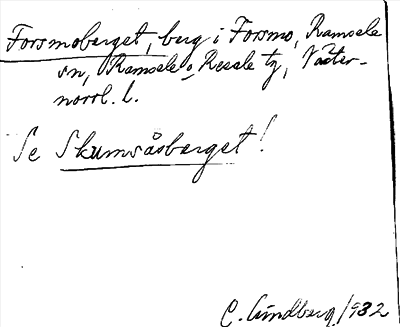 Forsmoberget, berg i Forsmo, Ramsele
sn, Ramsele o. Resele tg, Väster-
norrl. l.
Se Skumsåsberget!
C. Lindberg 1932